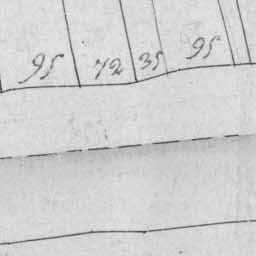 95 72 35 95